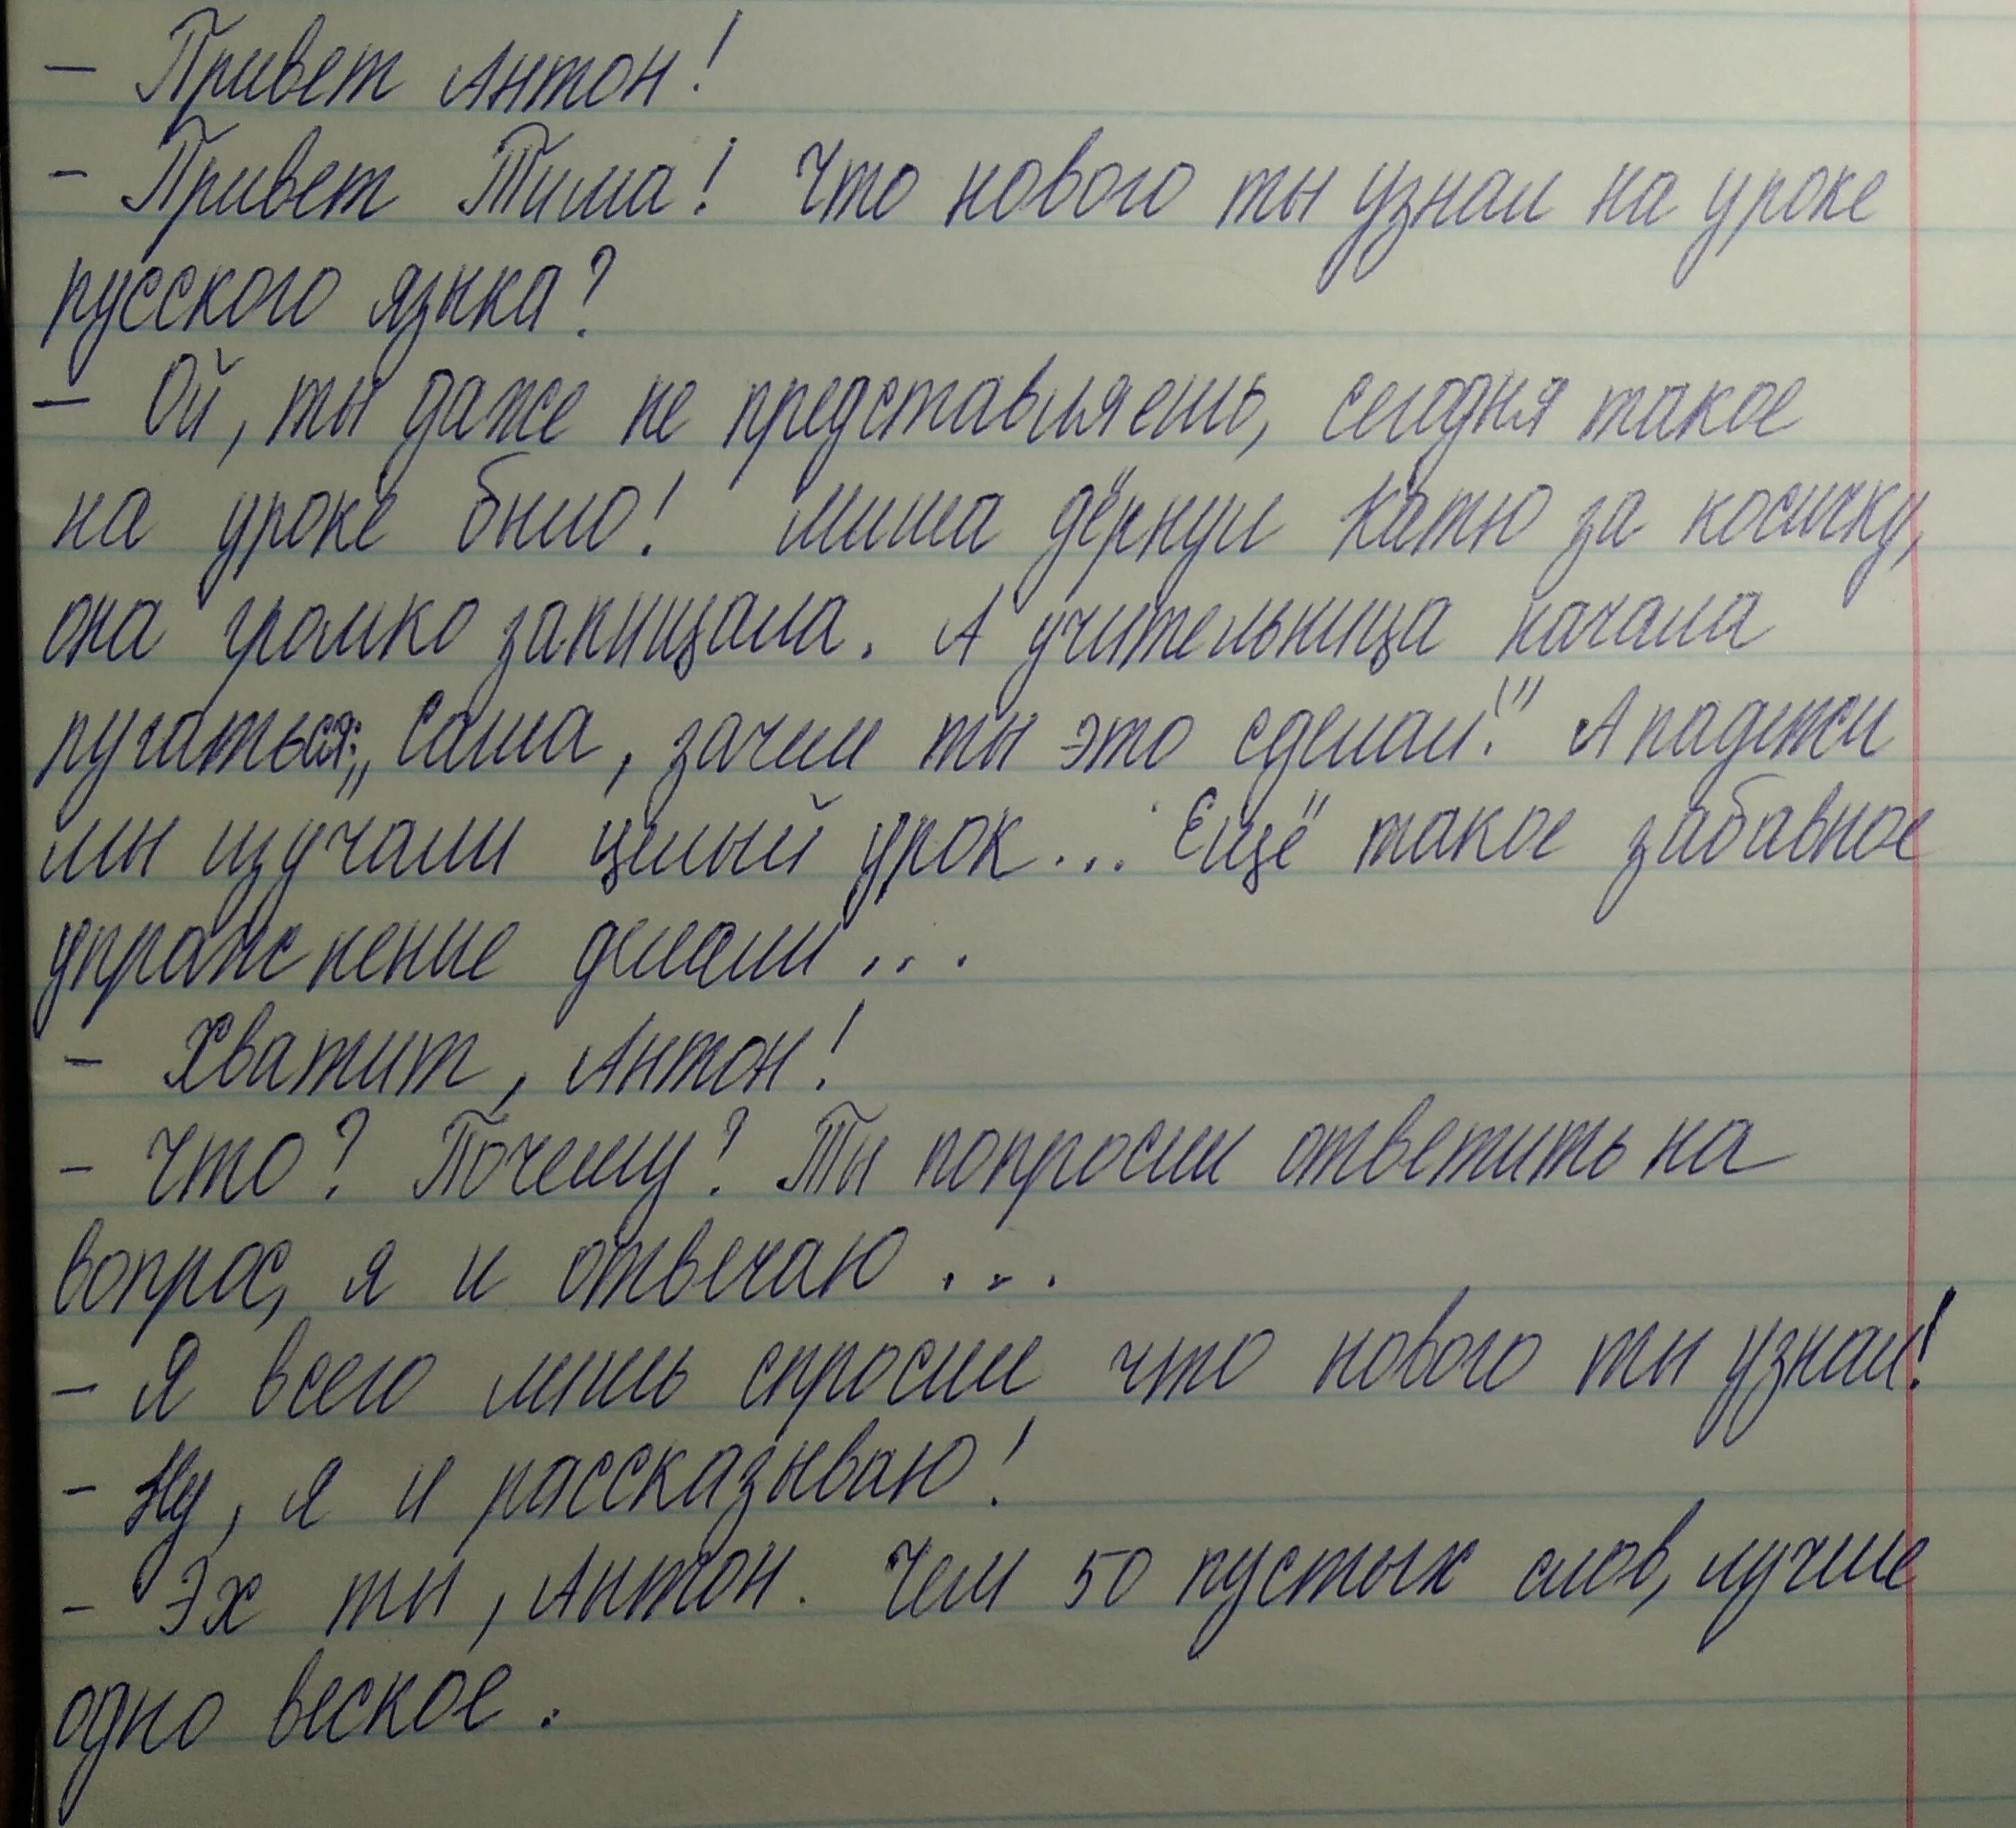 – Привет Антон!
– Привет Тима! Что нового ты узнал на уроке
русского языка?
– Ой, ты даже не представляешь, сегодня такое
на уроке было! Миша дёрнул Катю за косичку,
она громко запищала. А учительница начала
ругаться: „Саша, зачем ты это сделал!" А падежи
мы изучали целый урок... Ещё такое забавное
упражнение делали...
– Хватит, Антон!
– Что? Почему? Ты попросил ответить на
вопрос, я и отвечаю...
– Я всего лишь спросил что нового ты узнал!
– Ну, я и рассказываю!
– Эх ты, Антон. Чем 50 пустых слов, лучше
одно веское.